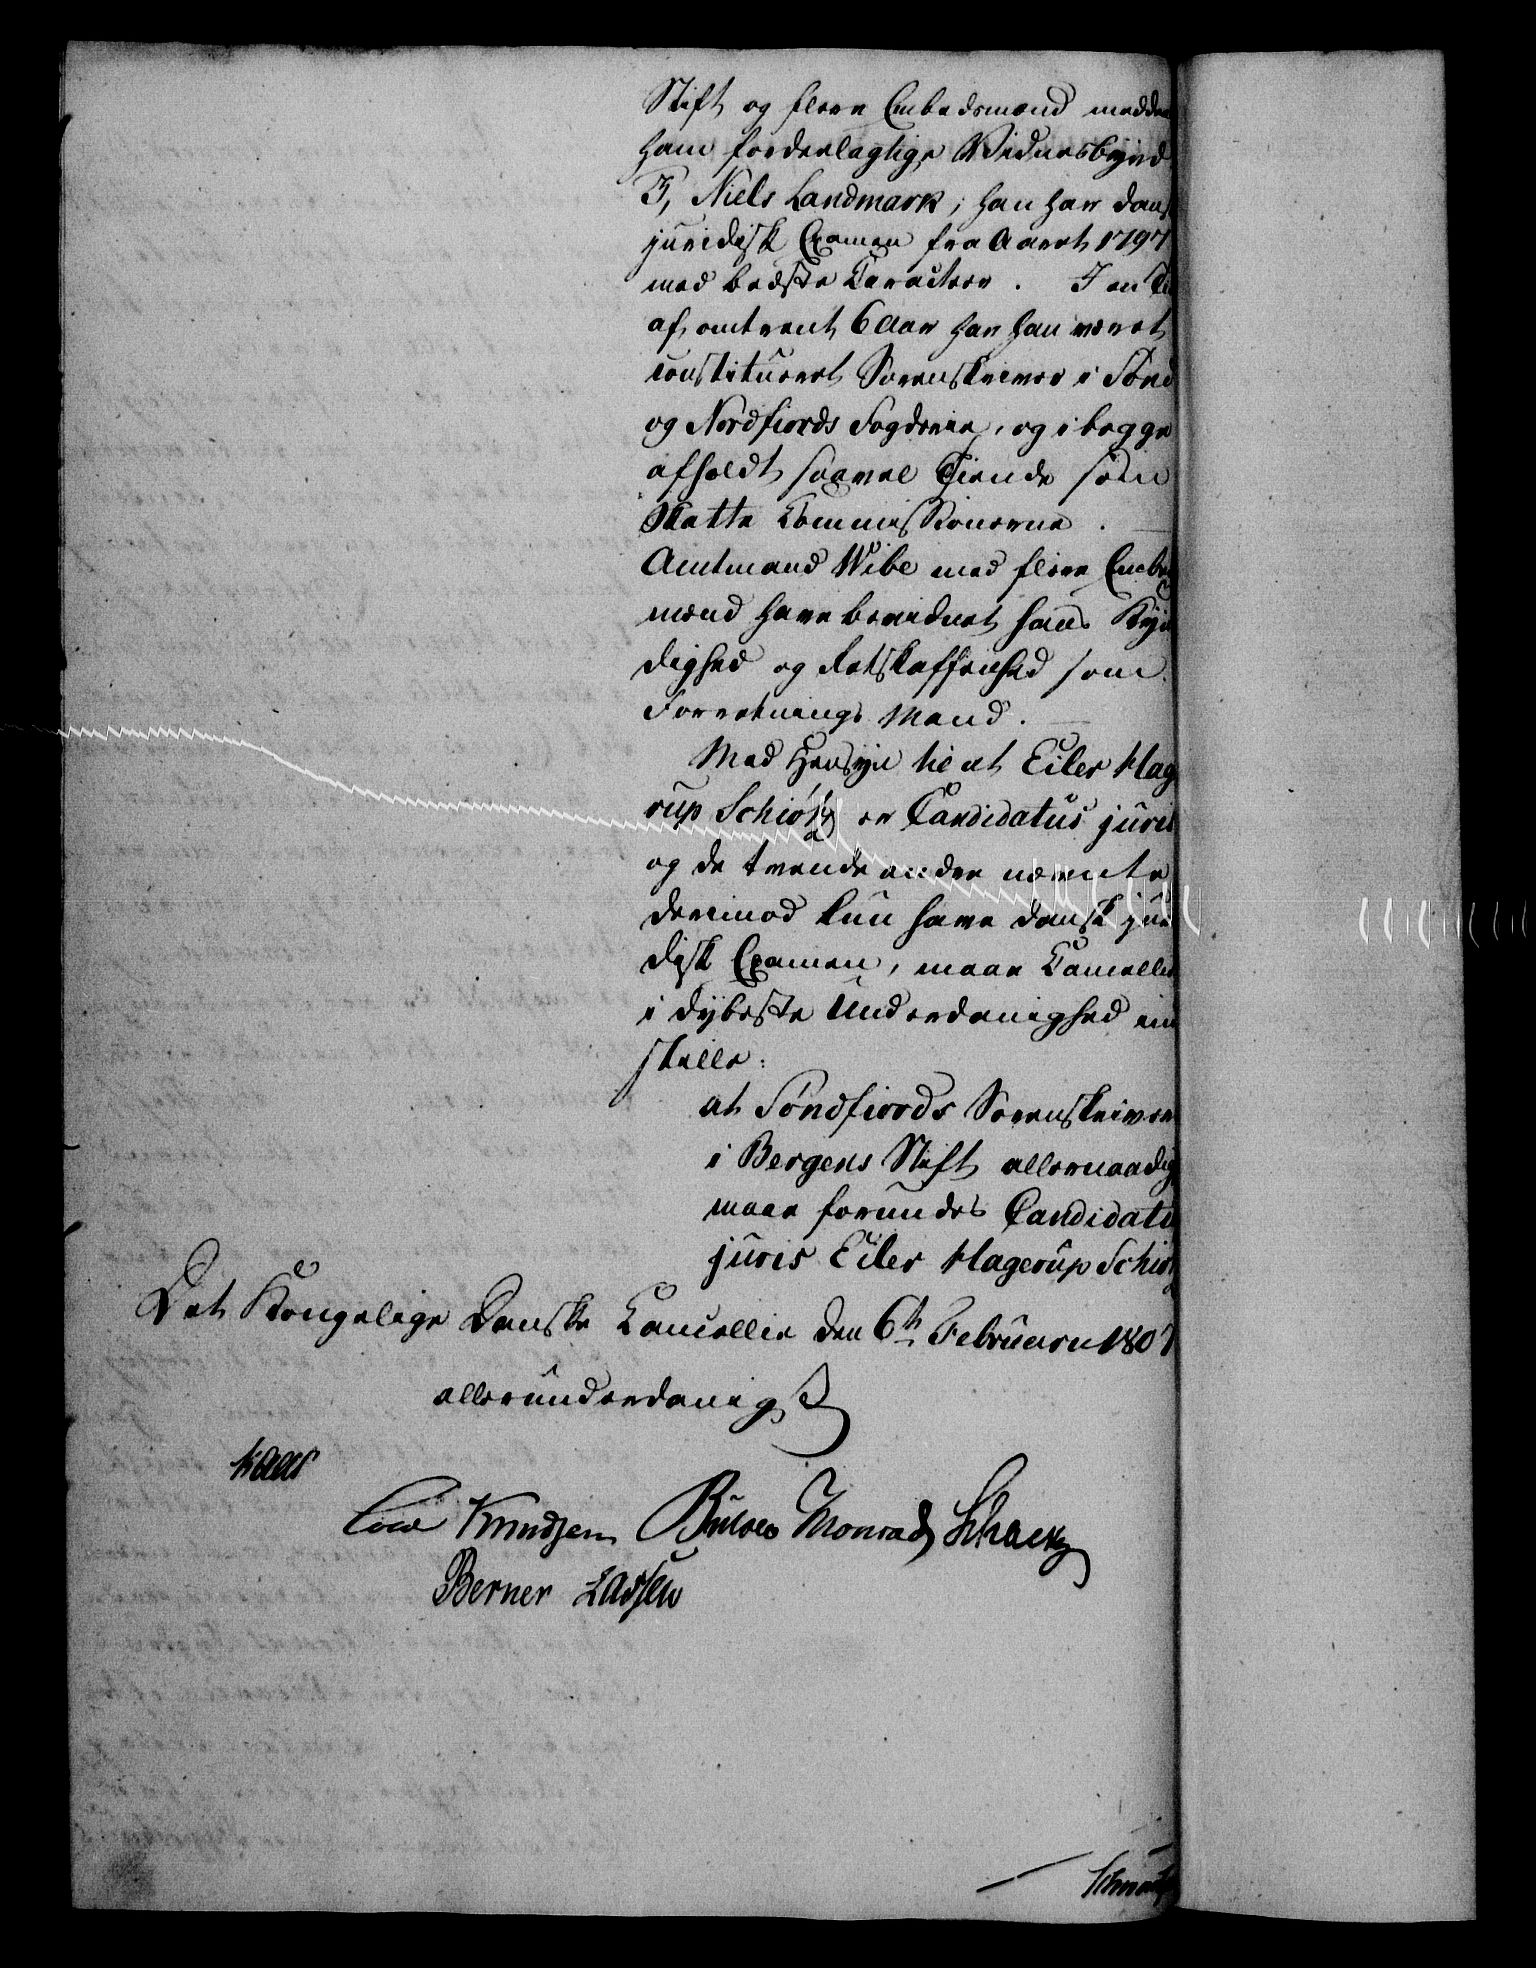 Stift og flere Embedsmænd medde
ham fordeelagtige Vidnesbyrd
3, Niels Landmark; han har dansk
juridisk Examen fra Aaret 1797
med bedste Caracteer. I en Ti
af omtrent 6 Aar har han været
constitueret Sorenskriver i Sønd
og Nordfiords Fogderie, og i begge
afholdt saavel Tiende som
Skatte Commissionerne.
Amtmand Wibe med flere Embeds
mænd have bevidnet hans Kyn
dighed og Retskaffenhed som
Forretnings Mand.
Med Hensyn til at Eiler Hag
rup Schiøtz er Candidatus juris
og de tvende andre nævnte
derimod kun have dansk juri
disk Examen, maae Cancellie
i dybeste Underdanighed ind
stille:
at Søndfiords Sorenskriver
i Bergens Stift allernaadig
maae forundes Candidatu
juris Eiler Hagerup Schiøt
Det Kongelige Danske Cancellie den 6te Februarii 1807
allerunderdanigst
Kaas
Cold Knudsen Bülow Monrad Schack
Berner Lassen